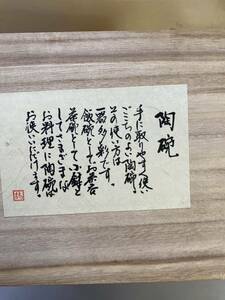 陶碗
手に取りやすく使い
ごこちのよい陶碗。
その使い方は
一器多彩です。
飯碗として、お茶呑
茶碗として、小鉢と
してさまざまな
お料理に陶碗を
お使いいただけます。